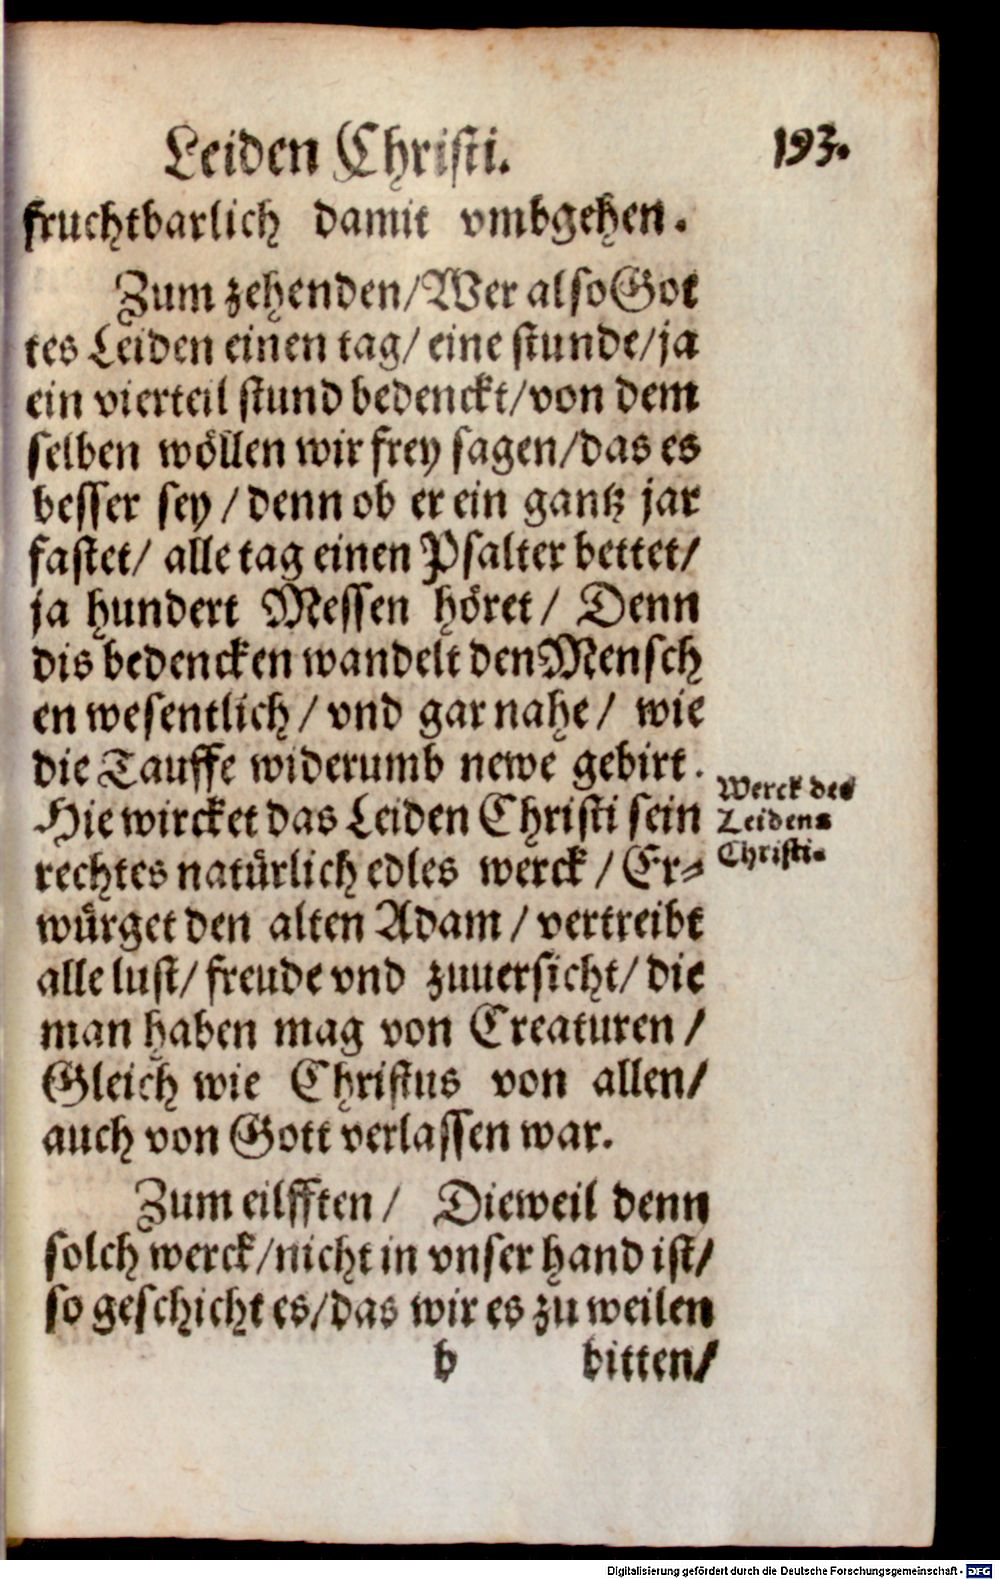 Leiden Christi. 193.
fruchtbarlich damit vmbgehen.
Zum zehenden/Wer also Got
tes Leiden einen tag/ eine stunde/ja
ein vierteil stund bedenckt/von dem
selben wöllen wir frey sagen/das es
besser sey / denn ob er ein gantz jar
fastet/ alle tag einen Psalter bettet/
ja hundert Messen höret/ Denn
dis bedencken wandelt den Mensch
en wesentlich/ vnd gar nahe/ wie
die Tauffe widerumb newe gebirt.
Hie wircket das Leiden Christi sein
rechtes natürlich edles werck / Er⸗
würget den alten Adam / vertreibt
alle lust/ freude vnd zuuersicht/ die
man haben mag von Creaturen /
Gleich wie Christus von allen/
auch von Gott verlassen war.
Werck des
Leidens
Christi.
Zum eilfften / Dieweil denn
solch werck/nicht in vnser hand ist/
so geschicht es/das wir es zu weilen
b bitten/
Digitalisierung gefördert durch die Deutsche Forschungsgemeinschaft - DFG